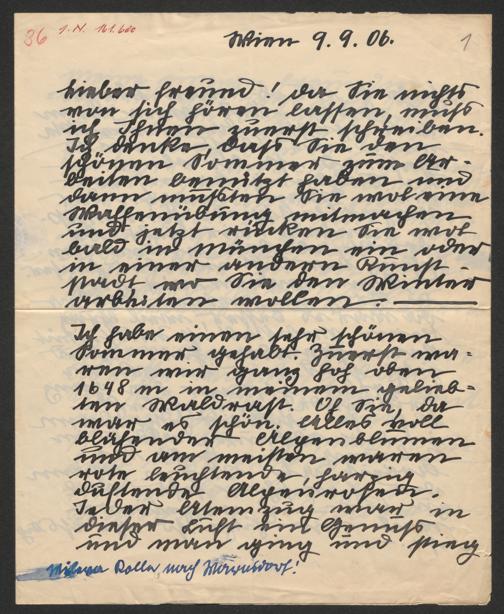 36 J. N. 161.600
Wien 9. 9. 06. 1
Lieber Freund! Da Sie nichts
von sich hören lassen, muss
ich Ihnen zuerst schreiben.
Ich denke, dass Sie den
schönen Sommer zum Ar-
beiten benützt haben und
dann mussten Sie wol eine
Waffenübung mitmachen
und jetzt rücken Sie wol
bald in München ein oder
in einer andern Kunst-
stadt wo Sie den Winter
arbeiten wollen.
Ich habe einen sehr schönen
Sommer gehabt. Zuerst wa-
ren wir ganz hoch oben
1648 m in meinem gelieb-
ten Waldrast. Oh Sie, da
war es schön. Alles voll
blühender Alpenblumen
und am meisten waren
rote leuchtende, harzig
duftende Alpenrosen.
Jeder Atemzug war in
dieser Luft ein Genuss
und man ging und stieg
nach Warnsdorf!